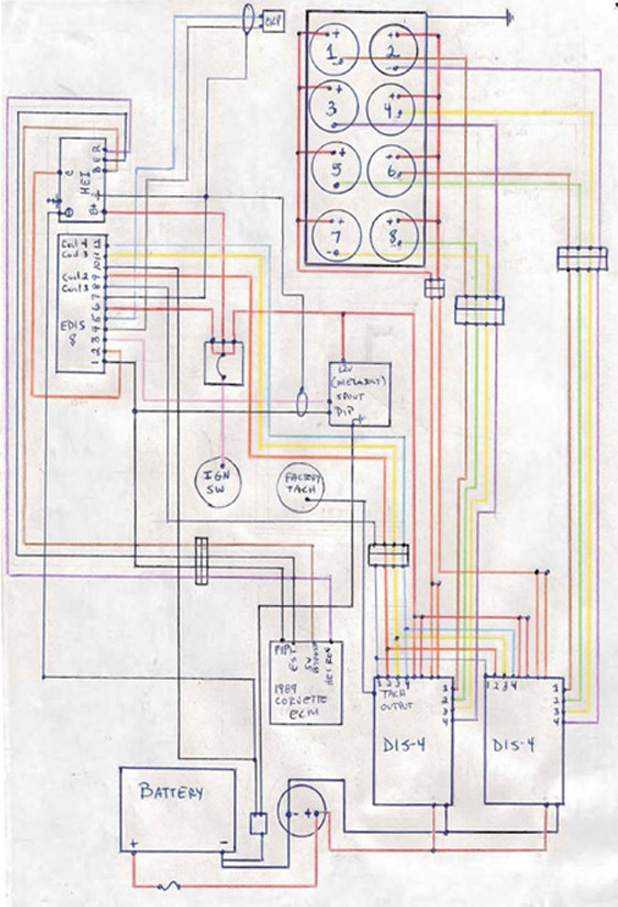 CKP
1
2
3
4
5
6
7
8
C
HEI
B E R
B+
Coil 4 12
Coil 3 11
10
Coil 2 9
Coil 1 8
7
6
5
EDIS 4
8 3
2
1
12V
(MEGAJOLT)
SPOUT
DIP
IGN
SW
FACTORY
TACH
PIP
EST
5V
BYPASS
HEI REF
1989
CORVETTE
ECM
1 2 3 4
TACH
OUTPUT
1
2
3
4
DIS-4
1 2 3 4
1
2
3
4
DIS-4
BATTERY
+ -
- +